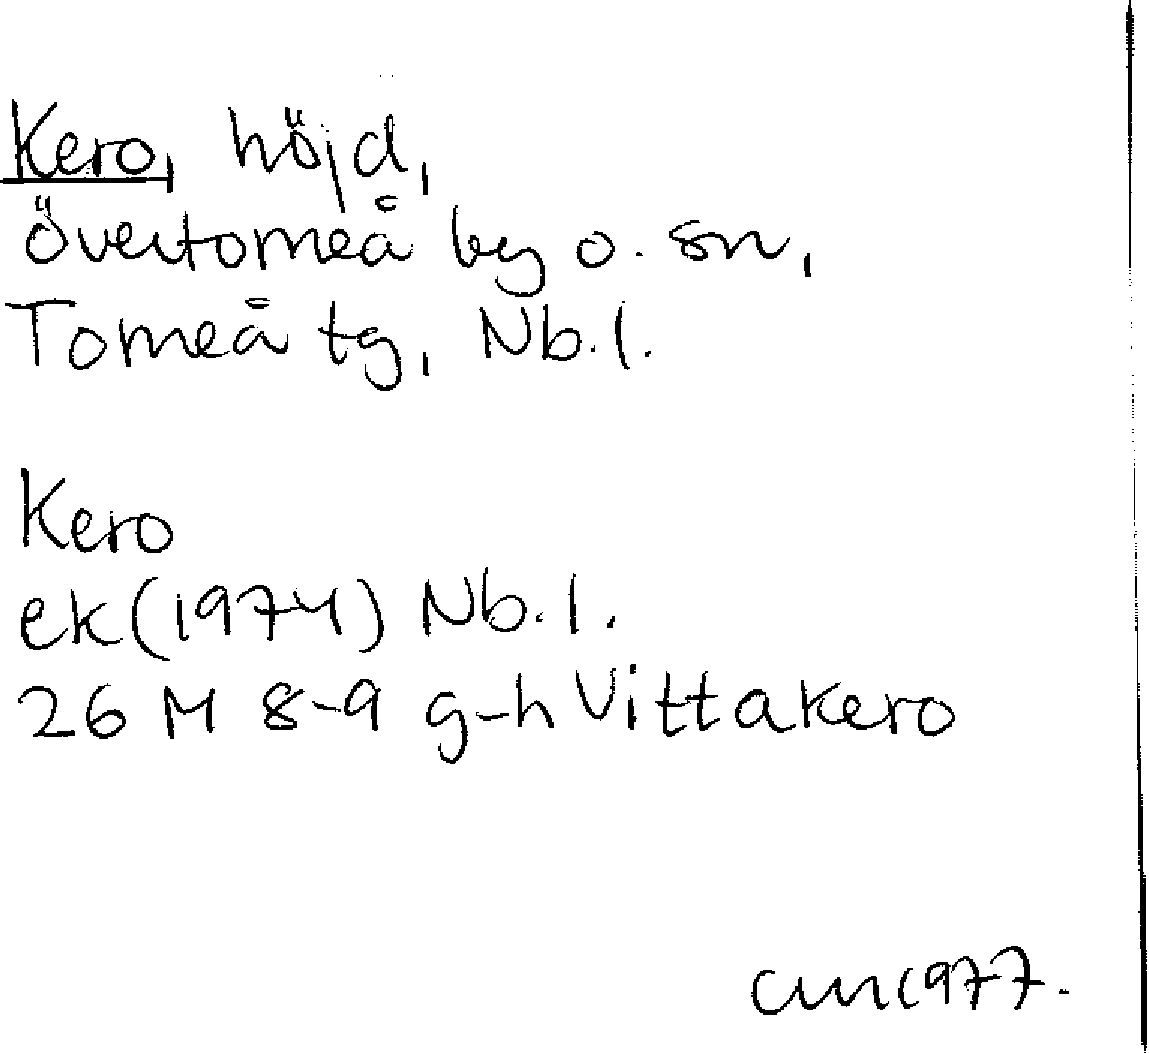 Kero, höjd,
Övertorneå by o. sn,
Torneå tg, Nb.l.
Kero
ek(1974) Nb.l.
26 M 8-9 g-h Vittakero
1977.